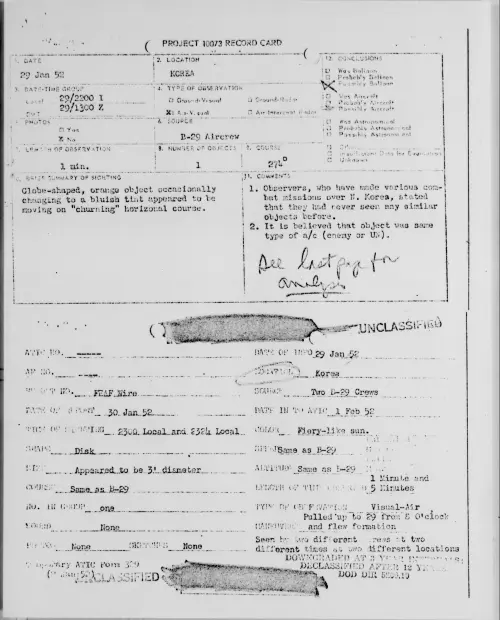 PROJECT 10073 RECORD CARD
1. DATE
29 Jan 52
2. LOCATION
KOREA
12. CONCLUSIONS
Was Balloon
Probably Balloon
Possibly Balloon
3. DATE-TIME GROUP
Local 29/2200 I
GMT 29/1300 Z
4. TYPE OF OBSERVATION
Ground-Visual
Ground-Radar
Air-Visual
Air-Intercept Radar
Was Aircraft
Probably Aircraft
Possibly Aircraft
5. PHOTOS
Yes
No
6. SOURCE
B-29 Aircrew
Was Astronomical
Probably Astronomical
Possibly Astronomical
7. LENGTH OF OBSERVATION
1 min.
8. NUMBER OF OBJECTS
1
9. COURSE
274°
Other
Insufficient Data for Evaluation
Unknown
10. BRIEF SUMMARY OF SIGHTING
Globe-shaped, orange object occasionally
changing to a bluish tint that appeared to be
moving on "churning" horizonal course.
11. COMMENTS
1. Observers, who have made various com-
bat missions over N. Korea, stated
that they had never seen any similar
objects before.
2. It is believed that object was some
type of a/c (enemy or UN).
See last page for
analysis
UNCLASSIFIED
ATIC NO.
DATE OF INFO 29 Jan 52
AF NO.
LOCATION Korea
REPORT NO. FEAF Wire
SOURCE Two B-29 Crews
DATE OF REPORT 30 Jan 52
DATE IN TO ATIC 1 Feb 52
TIME OF SIGHTING 2300 Local and 2324 Local
COLOR Fiery-like sun.
SHAPE Disk
SPEED Same as B-29
SIZE Appeared to be 3' diameter
ALTITUDE Same as B-29
COURSE Same as B-29
1 Minute and
LENGTH OF TIME OBSERVED 5 Minutes
NO. IN GROUP one
TYPE OF OBSERVATION Visual-Air
Pulled up to 29 from 8 O'clock
SOUND None
MANEUVERS and flew formation
PHOTOS None SKETCHES None
Seen by two different crews at two
different times at two different locations
Temporary ATIC Form 329
(2 Jan 52)
UNCLASSIFIED
DOWNGRADED AT 3 YEAR INTERVALS;
DECLASSIFIED AFTER 12 YEARS.
DOD DIR 5200.10